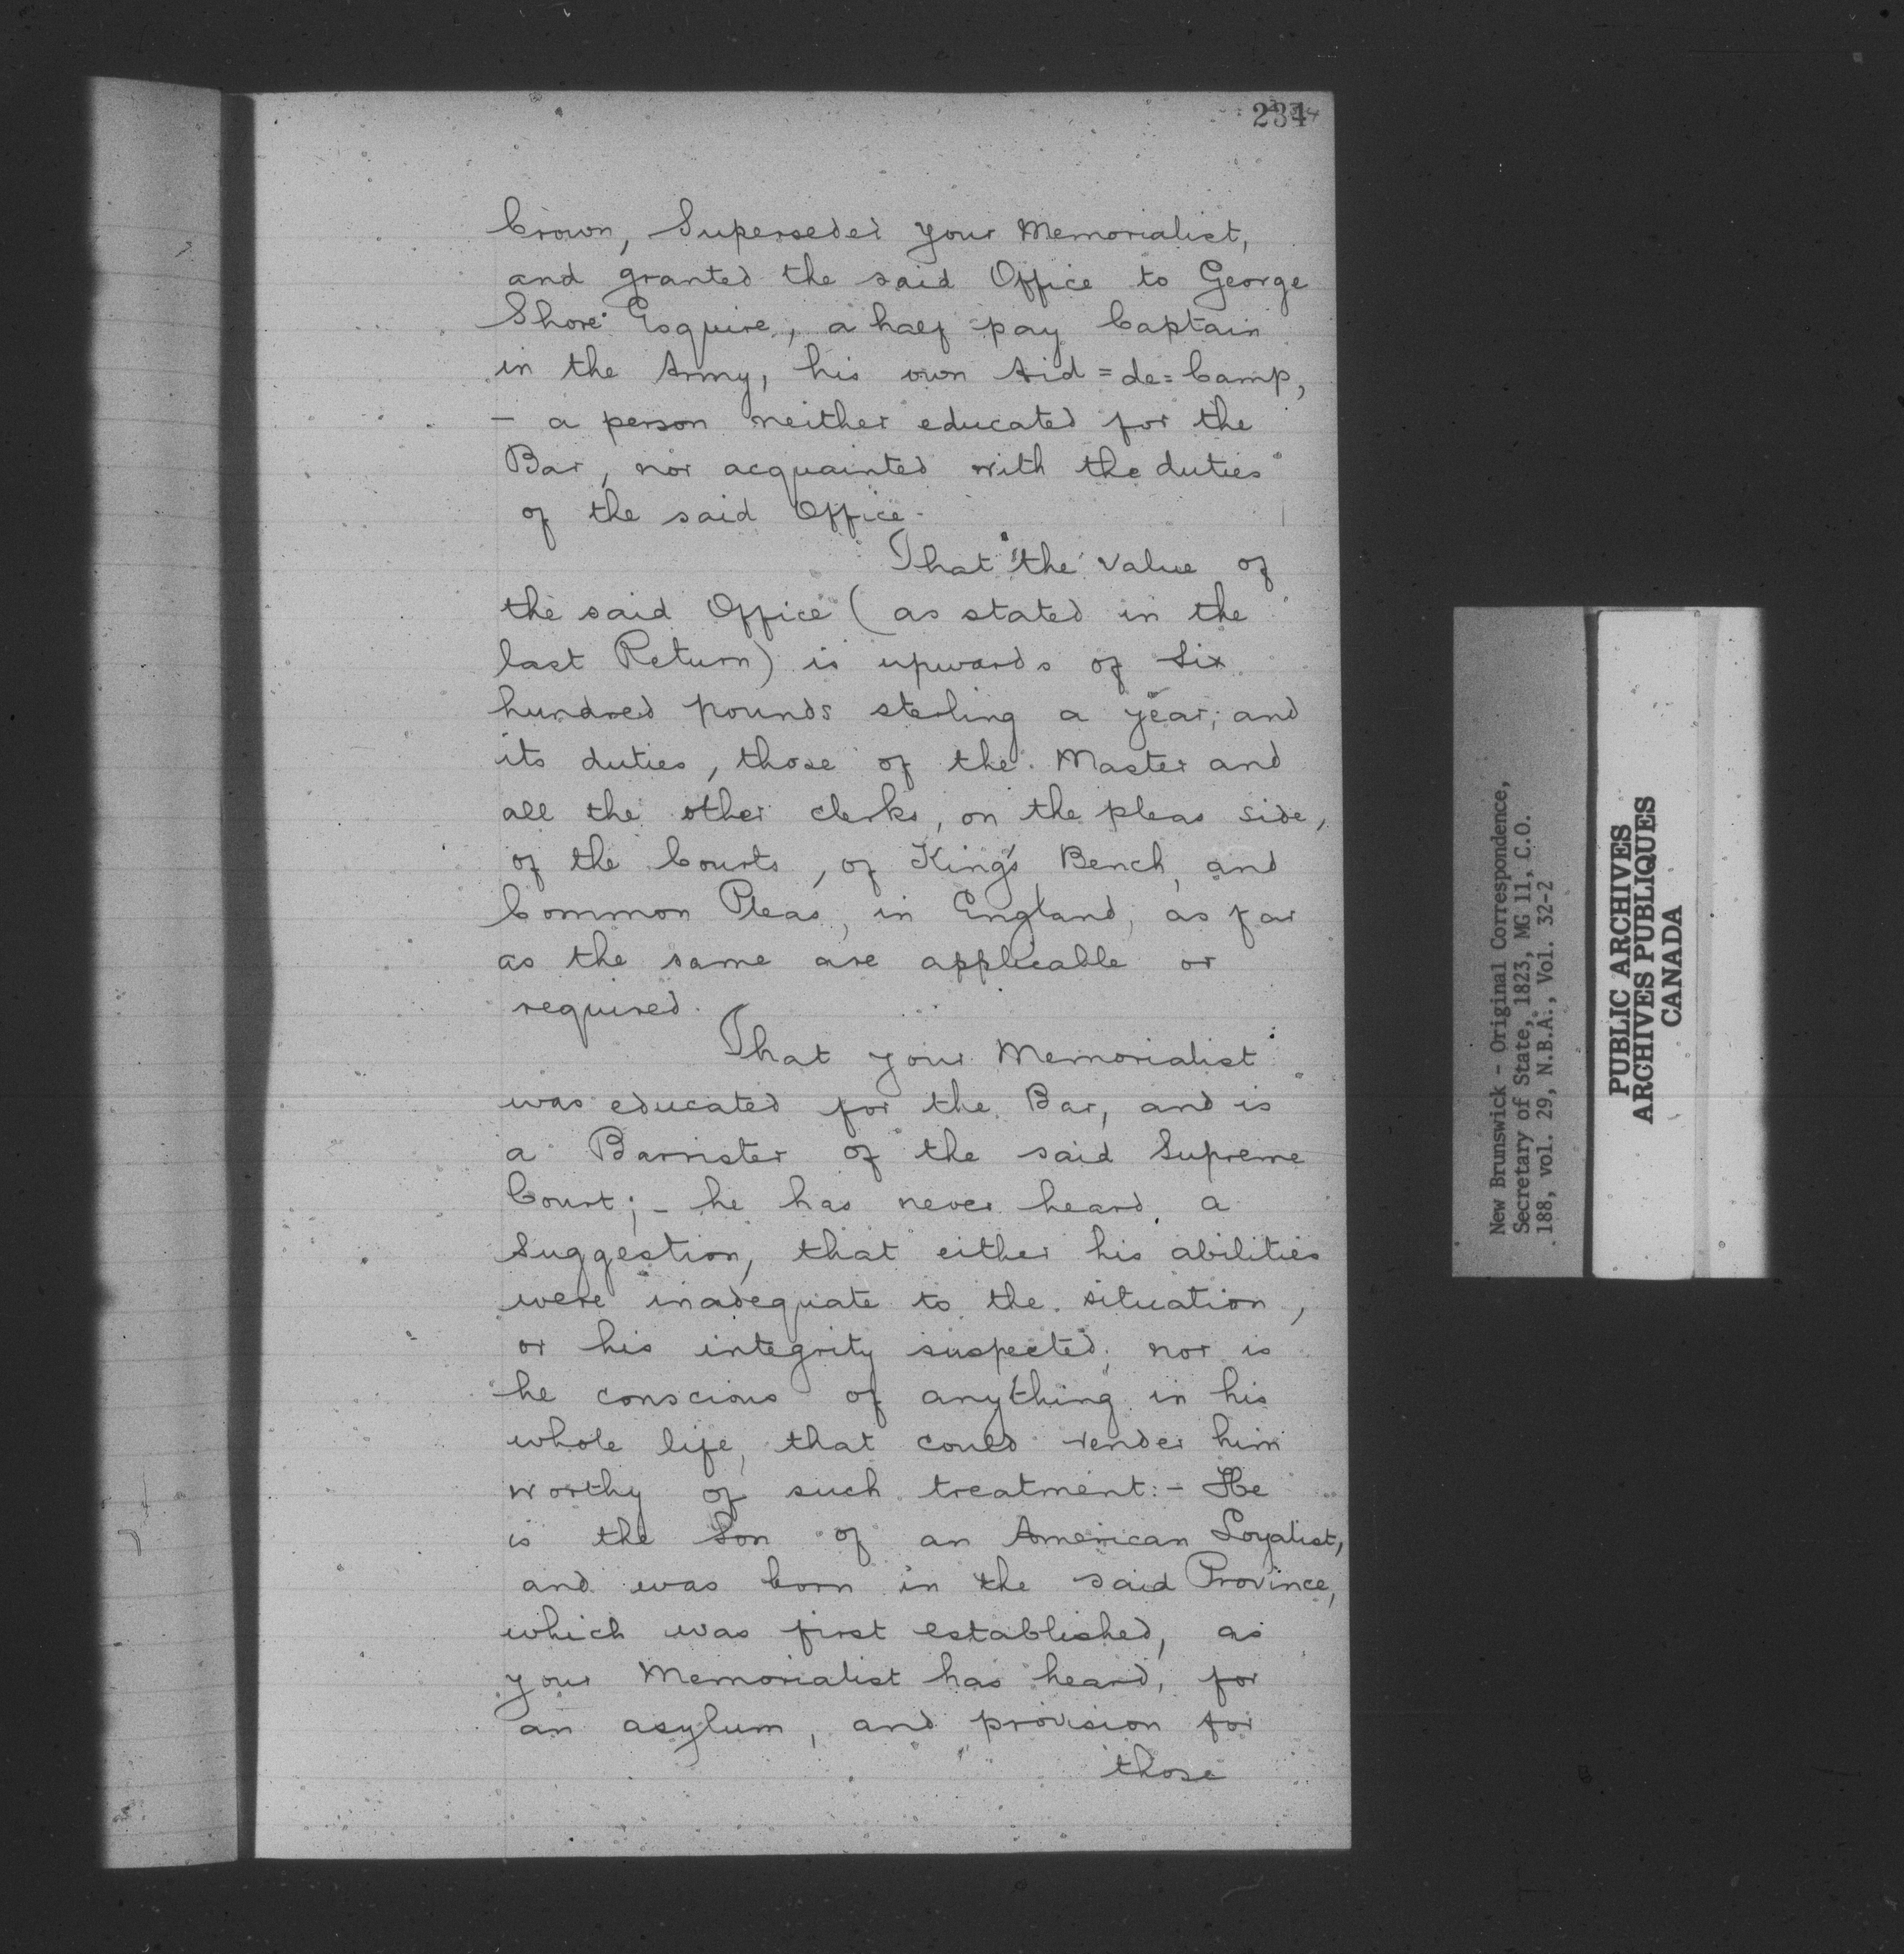 234
Crown, Superseded your Memorialist,
and granted the said Office to George
Shore Esquire, a half pay Captain
in the Army, his own Aid=de=Camp,
– a person neither educated for the
Bar, nor acquainted with the duties
of the said Office.
That the value of
the said Office (as stated in the
last Return) is upwards of Six
hundred pounds sterling a year; and
its duties, those of the Master and
all the other clerks, on the pleas side,
of the Courts, of King's Bench, and
Common Pleas, in England, as far
as the same are applicable or
required.
That your Memorialist
was educated for the Bar, and is
a Barrister of the said Supreme
Court; – he has never heard a
suggestion, that either his abilities
were inadequate to the situation,
or his integrity suspected; nor is
he conscious of anything in his
whole life, that could render him
worthy of such treatment:– He
is the Son of an American Loyalist,
and was born in the said Province,
which was first established, as
your Memorialist has heard, for
an asylum, and provision for
those
New Brunswick - Original Correspondence,
Secretary of State, 1823, MG 11, C.O.
188, vol. 29, N.B.A., Vol. 32-2
PUBLIC ARCHIVES
ARCHIVES PUBLIQUES
CANADA